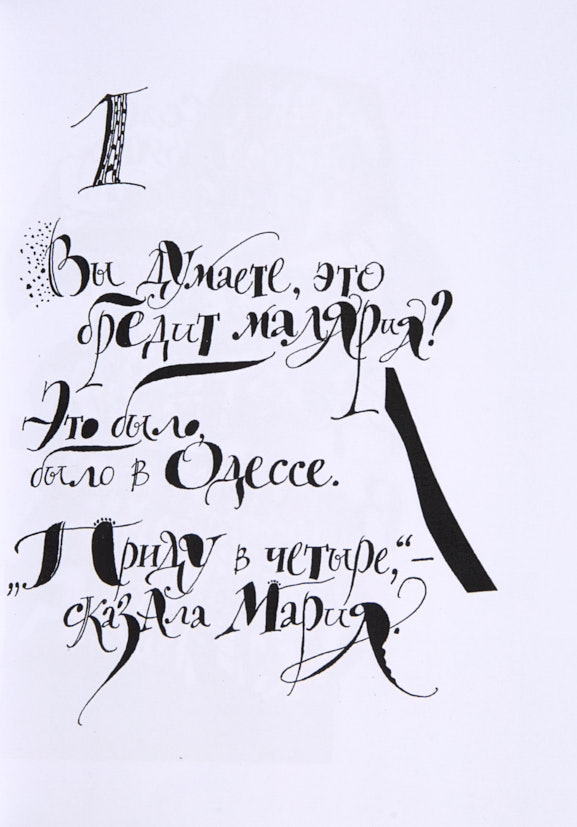 1
Вы думаете, это
бредит малярия?
Это было,
было в Одессе.
„Приду в четыре,“ –
сказала Мария.